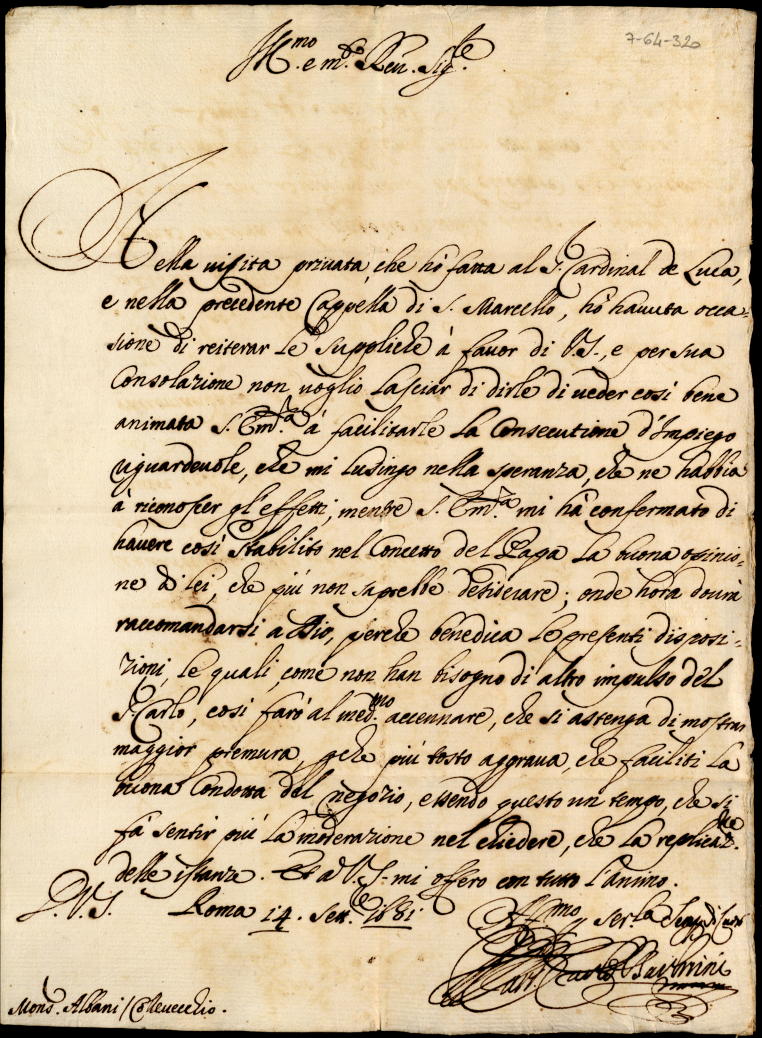 7-64-320
Ill.mo e m.to Reu. Sig.re
Nella uisita priuata, che hò fatta al S. Cardinal de Luca,
e nella precedente Cappella di S. Marcello, hò hauuta occa=
sione di reiterar le suppliche à fauor di V.S., e per sua
Consolazione non uoglio lasciar di dirle di ueder così bene
animata S. Em.za à facilitarle la Consecutione d'Impiego
riguardeuole, che mi lusingo nella speranza, che ne habbia
à riconoscer gl'effetti, mentre S. Em.za mi hà confermato di
hauere così stabilito nel Concetto del Papa la buona opinio=
ne di lei, che più non saprebbe desiderare; onde hora dourà
raccomandarsi a Dio, perche benedica le presenti disposi=
zioni, le quali, come non han bisogno di altro impulso del
S. Carlo, così farò al med.mo accennare, che si astenga di mostrar
maggior premura, perche più tosto aggraua, che faciliti la
buona Condotta del negozio, essendo questo un tempo, che si
fà sentir più la moderazione nel chiedere, che la replica
delle istanze. Et à V.S. mi offero con tutto l'animo.
D.V.S. Roma 14. Sett.re 1681
Aff.mo per ser.la sempre
Il Card. Carlo Barberini
Mons. Albani / Colleuecchio.